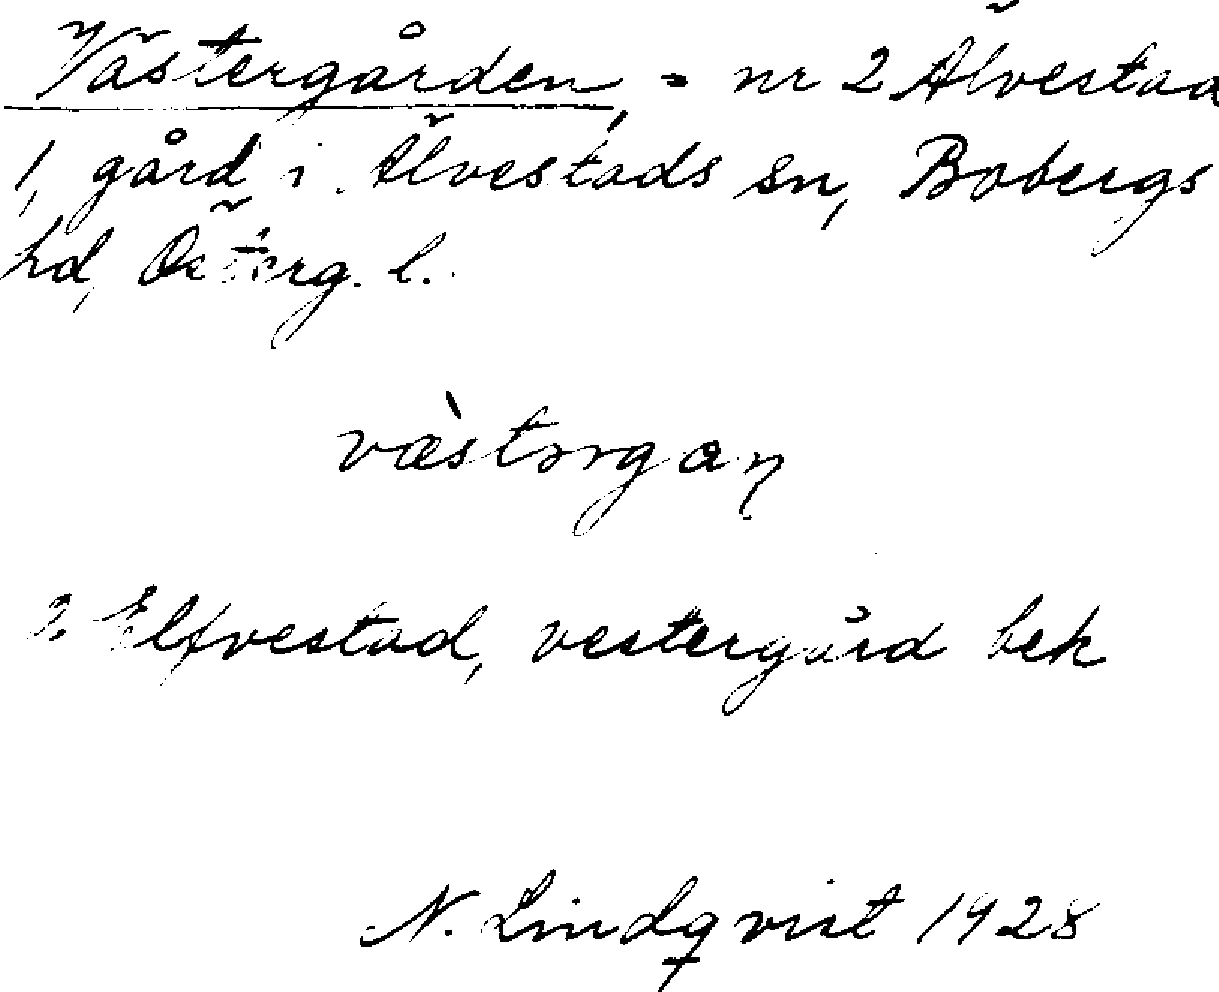 Västergården, = nr 2 Älvestad
1, gård i Älvestads sn, Bobergs
hd, Österg. l.
væ̀storgaɳ
2. Elfvestad, vestergård bek
N. Lindqvist 1928